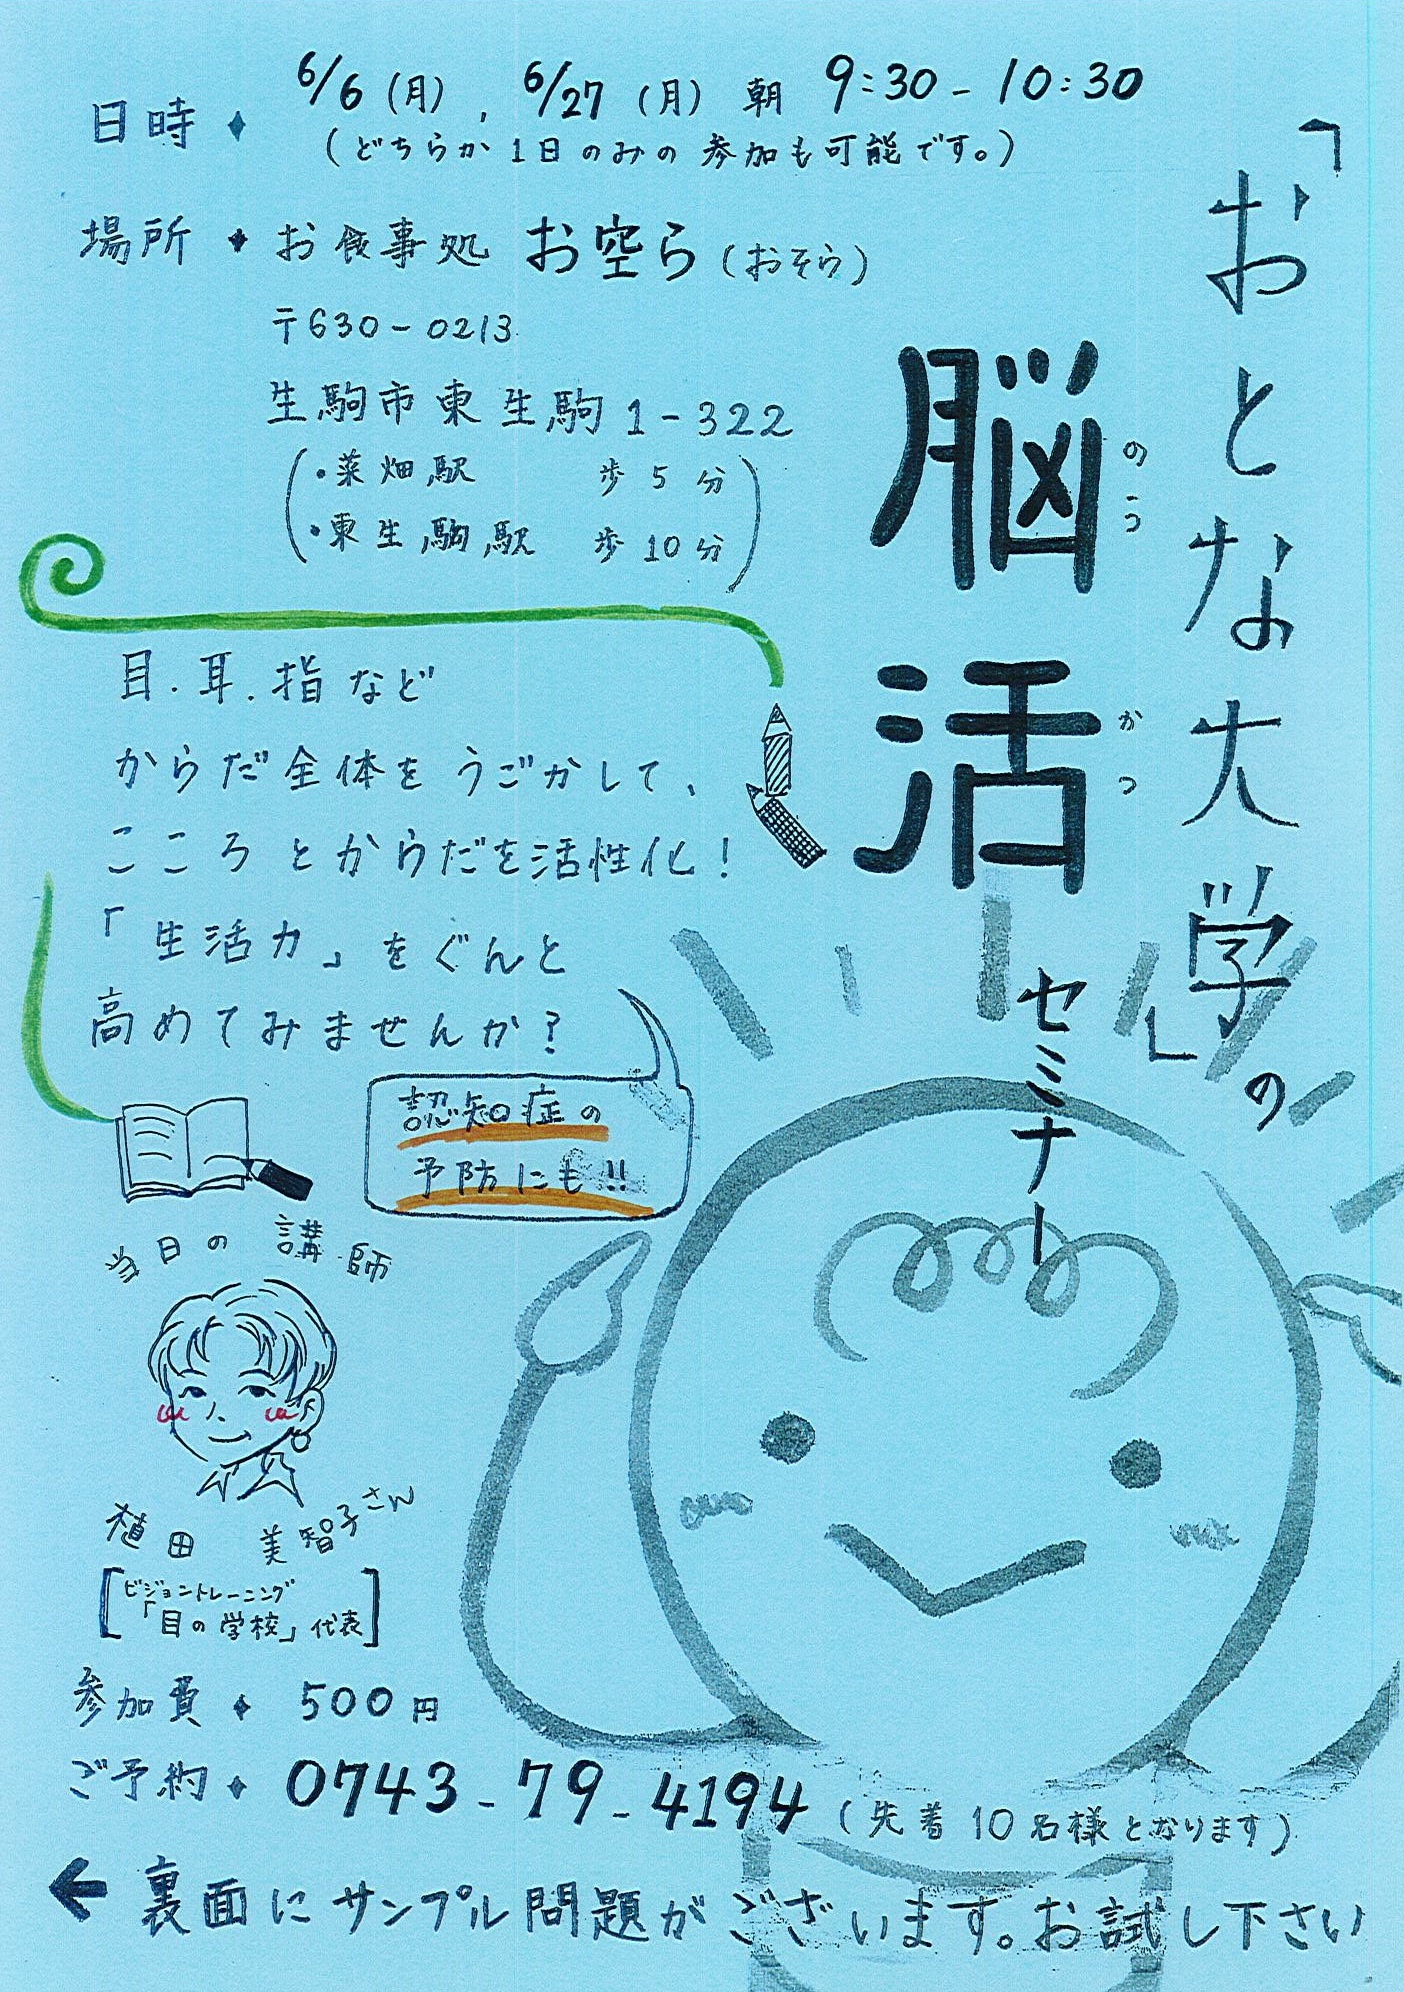 「おとな大学」の
脳活
のうかつ
セミナー
日時◆ 6/6(月), 6/27(月) 朝 9:30-10:30
(どちらか1日のみの参加も可能です。)
場所◆ お食事処 お空ら(おそら)
〒630-0213
生駒市東生駒1-322
・菜畑駅 歩5分
・東生駒駅 歩10分
目.耳.指など
からだ全体をうごかして、
こころとからだを活性化!
「生活力」をぐんと
高めてみませんか?
認知症の
予防にも!!
当日の講師
植田 美智子さん
ビジョントレーニング
「目の学校」代表
参加費◆ 500円
ご予約◆ 0743-79-4194 (先着10名様となります)
← 裏面にサンプル問題がございます。お試し下さい